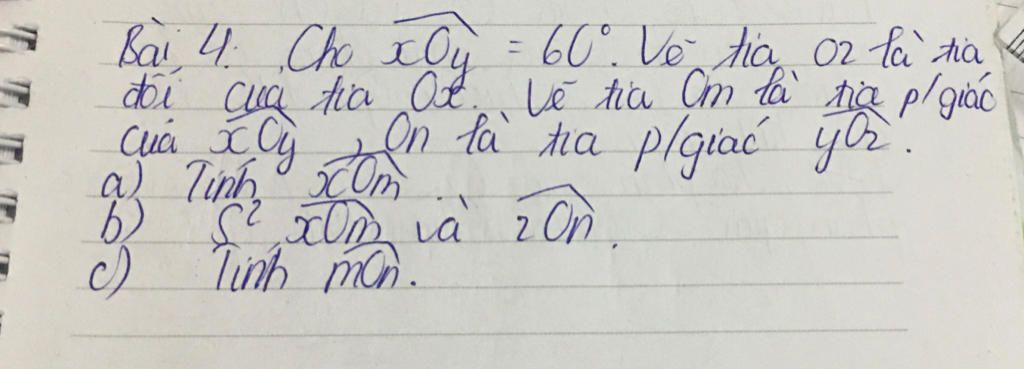 Bài 4. Cho xOy = 60°. Vẽ tia Oz là tia
đối của tia Ox. Vẽ tia Om là tia p/giác
của xOy, On là tia p/giác yOz.
a) Tính xOm
b) S² xOm và zOn.
c) Tính mOn.